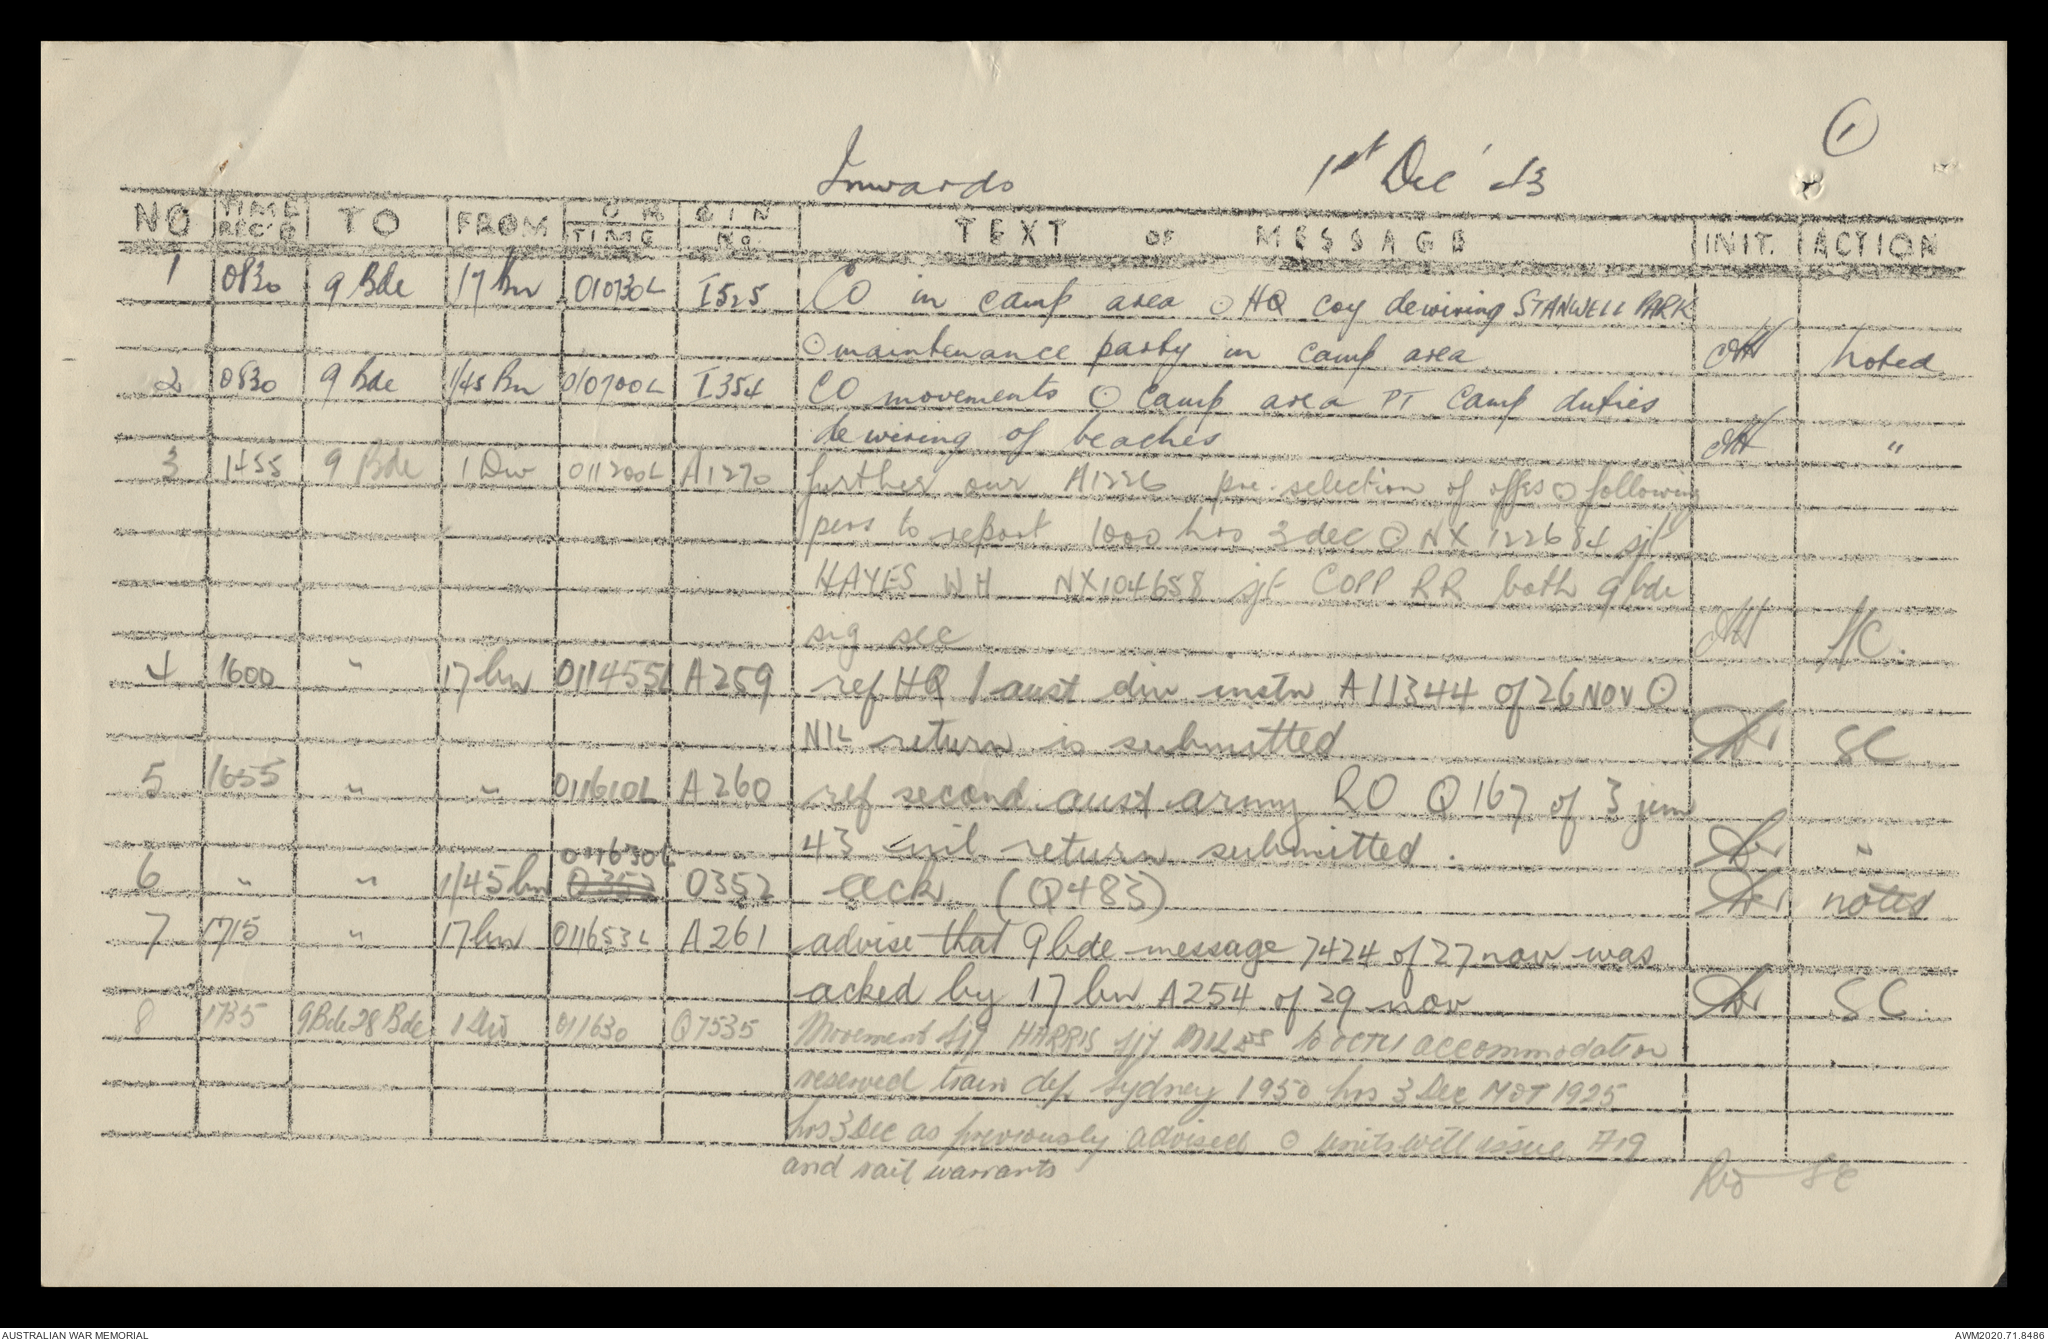 1
Inwards 1st Dec '43
NO TIME REC'D TO FROM OR TIME GIN No. TEXT OF MESSAGE INIT. ACTION
1 0830 9 Bde 17 Bn 010730L I525 CO in camp area ⊙ HQ coy dewiring STANWELL PARK
⊙ maintenance party in camp area noted
2 0830 9 Bde 1/45 Bn 010700L I354 CO movements ⊙ Camp area PT Camp duties
dewiring of beaches "
3 1455 9 Bde 1 Div 011200L A1270 further our A1226 pre-selection of offrs ⊙ following
pers to report 1000 hrs 3 dec ⊙ NX 122684 sjt
HAYES WH NX104658 sjt COPP RR both 9 bde
sig sec SC.
4 1600 " 17 bn 011455L A259 ref HQ 1 aust div instn A11344 of 26 NOV ⊙
NIL return is submitted SC
5 1655 " " 011610L A260 ref second aust army RO Q167 of 3 jun
43 nil return submitted. "
011630L
6 " " 1/45 bn 0352 0352 ack (Q483) noted
7 1715 " 17 bn 011653L A261 advise that 9 bde message 7424 of 27 nov was
acked by 17 bn A254 of 29 nov SC.
8 1735 9 Bde 28 Bde 1 Div 011630 Q7535 Movement sjt HARRIS sjt MILES to OCTU accommodation
reserved train dep Sydney 1950 hrs 3 Dec 1925
hrs 3 Dec as previously advised ⊙ units will issue A19
and rail warrants SC
AUSTRALIAN WAR MEMORIAL AWM2020.71.8486